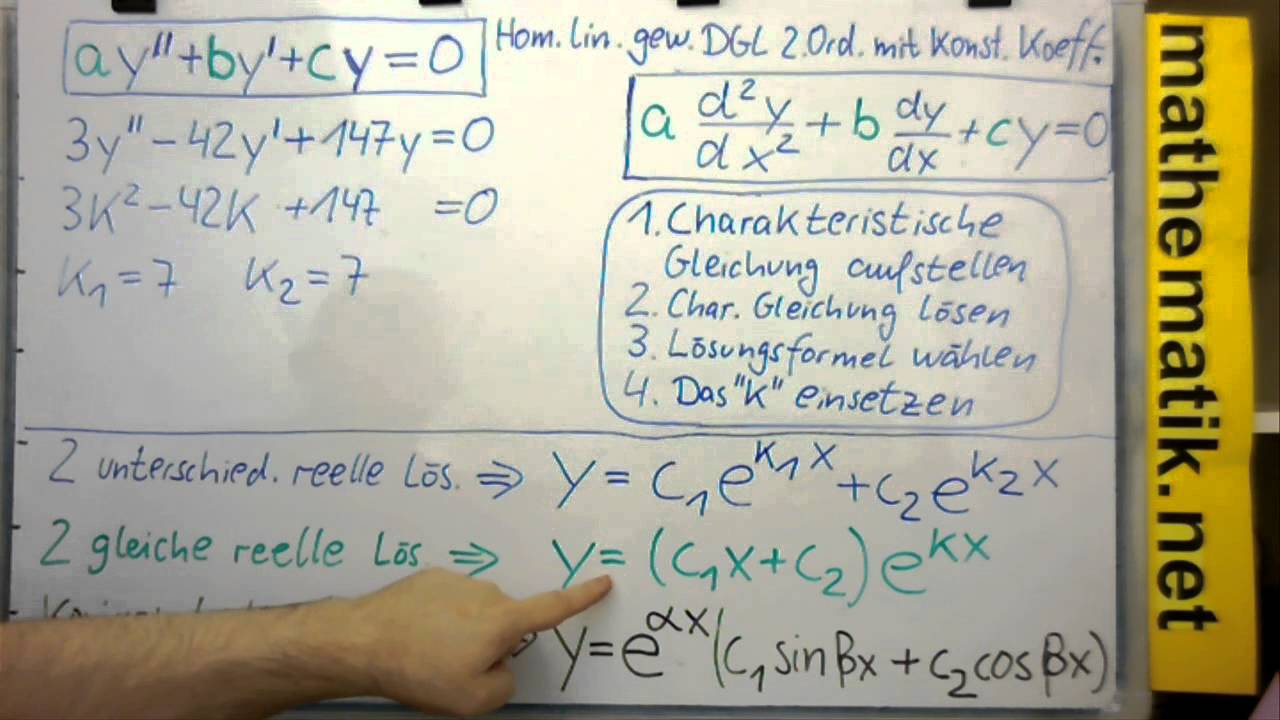 ay''+by'+cy=0
Hom. lin. gew. DGL 2. Ord. mit Konst. Koeff.
3y''-42y'+147y=0
3K²-42K +147 =0
K₁=7 K₂=7
a d²y/dx² + b dy/dx + cy=0
1. Charakteristische
Gleichung aufstellen
2. Char. Gleichung lösen
3. Lösungsformel wählen
4. Das "K" einsetzen
2 unterschied. reelle Lös. ⇒ y = c₁e^(K₁x) + c₂e^(K₂x)
2 gleiche reelle Lös. ⇒ y= (c₁x+c₂)e^(Kx)
y=e^(αx)(c₁sinβx + c₂cosβx)
mathematik.net